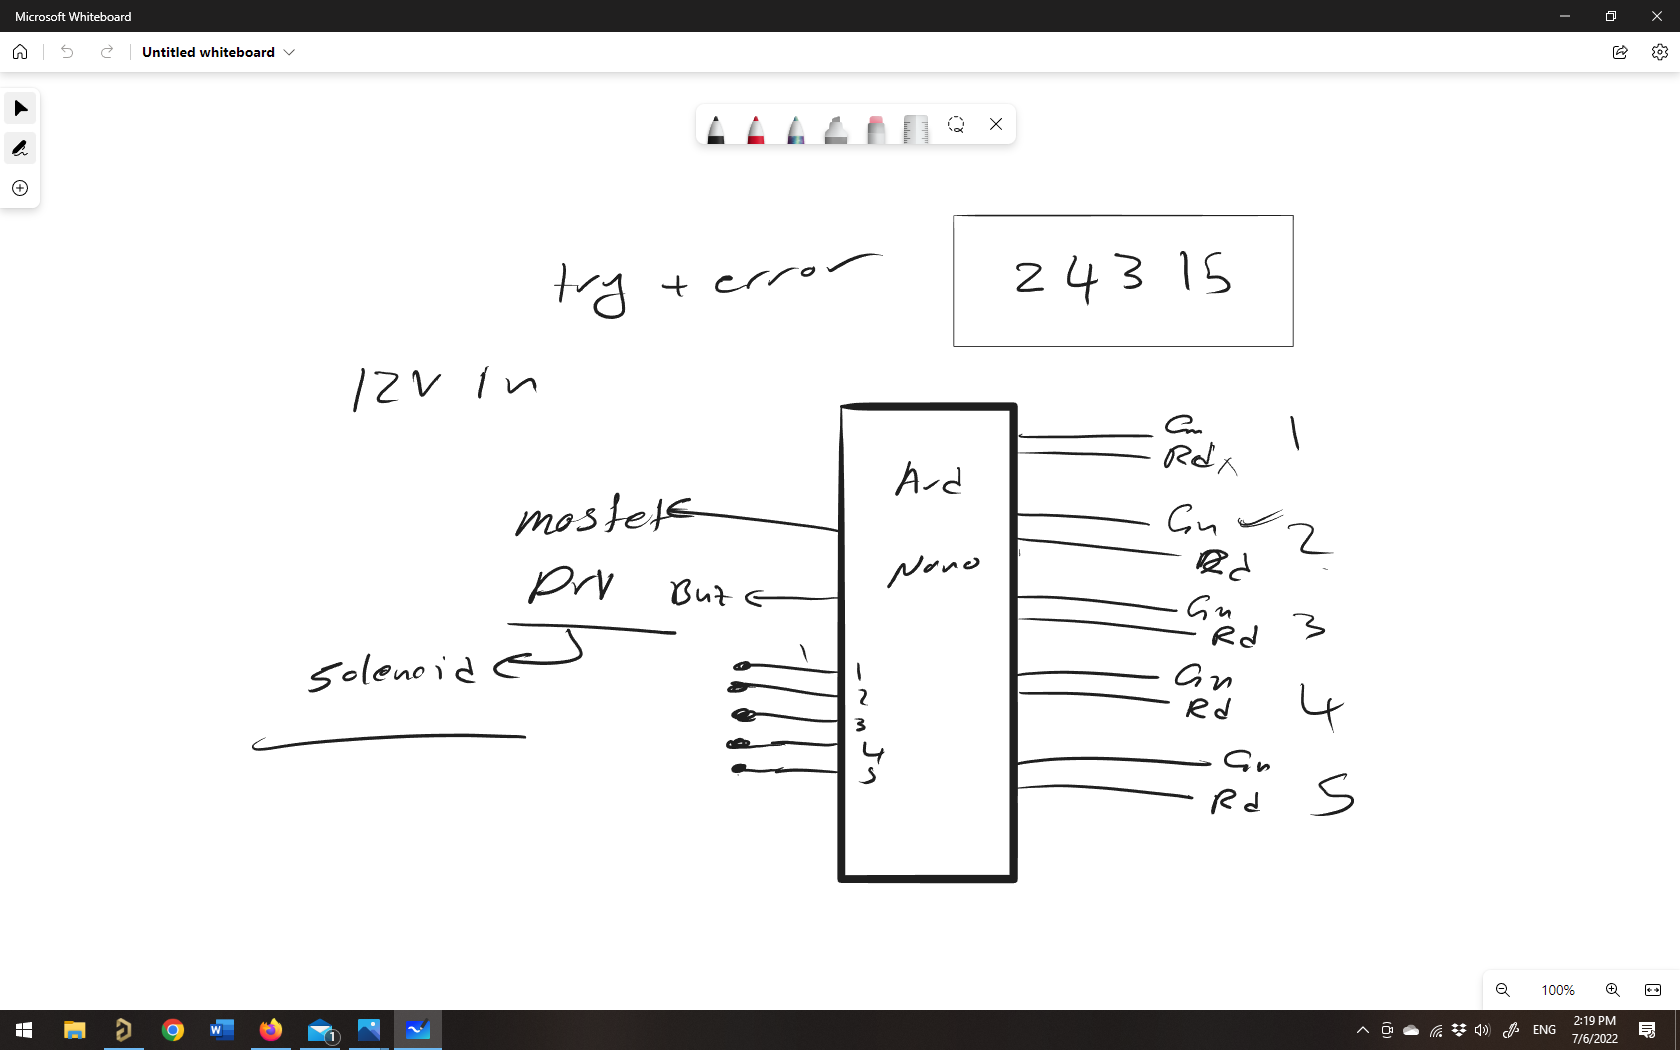 Microsoft Whiteboard
Untitled whiteboard
try + error
2 4 3 1 5
12V In
Ard
Nano
mosfet
Drv
Buz
Solenoid
1
1
2
3
4
5
Gn
Rd x
1
Gn ✓
Rd
2
Gn
Rd
3
Gn
Rd
4
Gn
Rd
5
100%
1
ENG
2:19 PM
7/6/2022